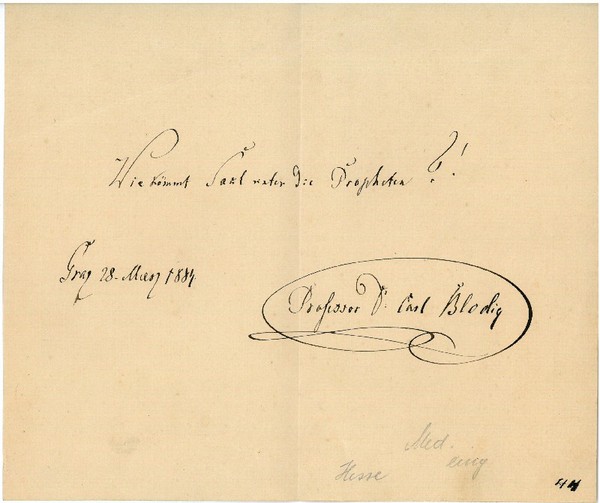 Wie kömmt Saul unter die Propheten ?!
Graz 28. Maerz 1884
Professor Dr. Carl Blodig
Med.
Hesse